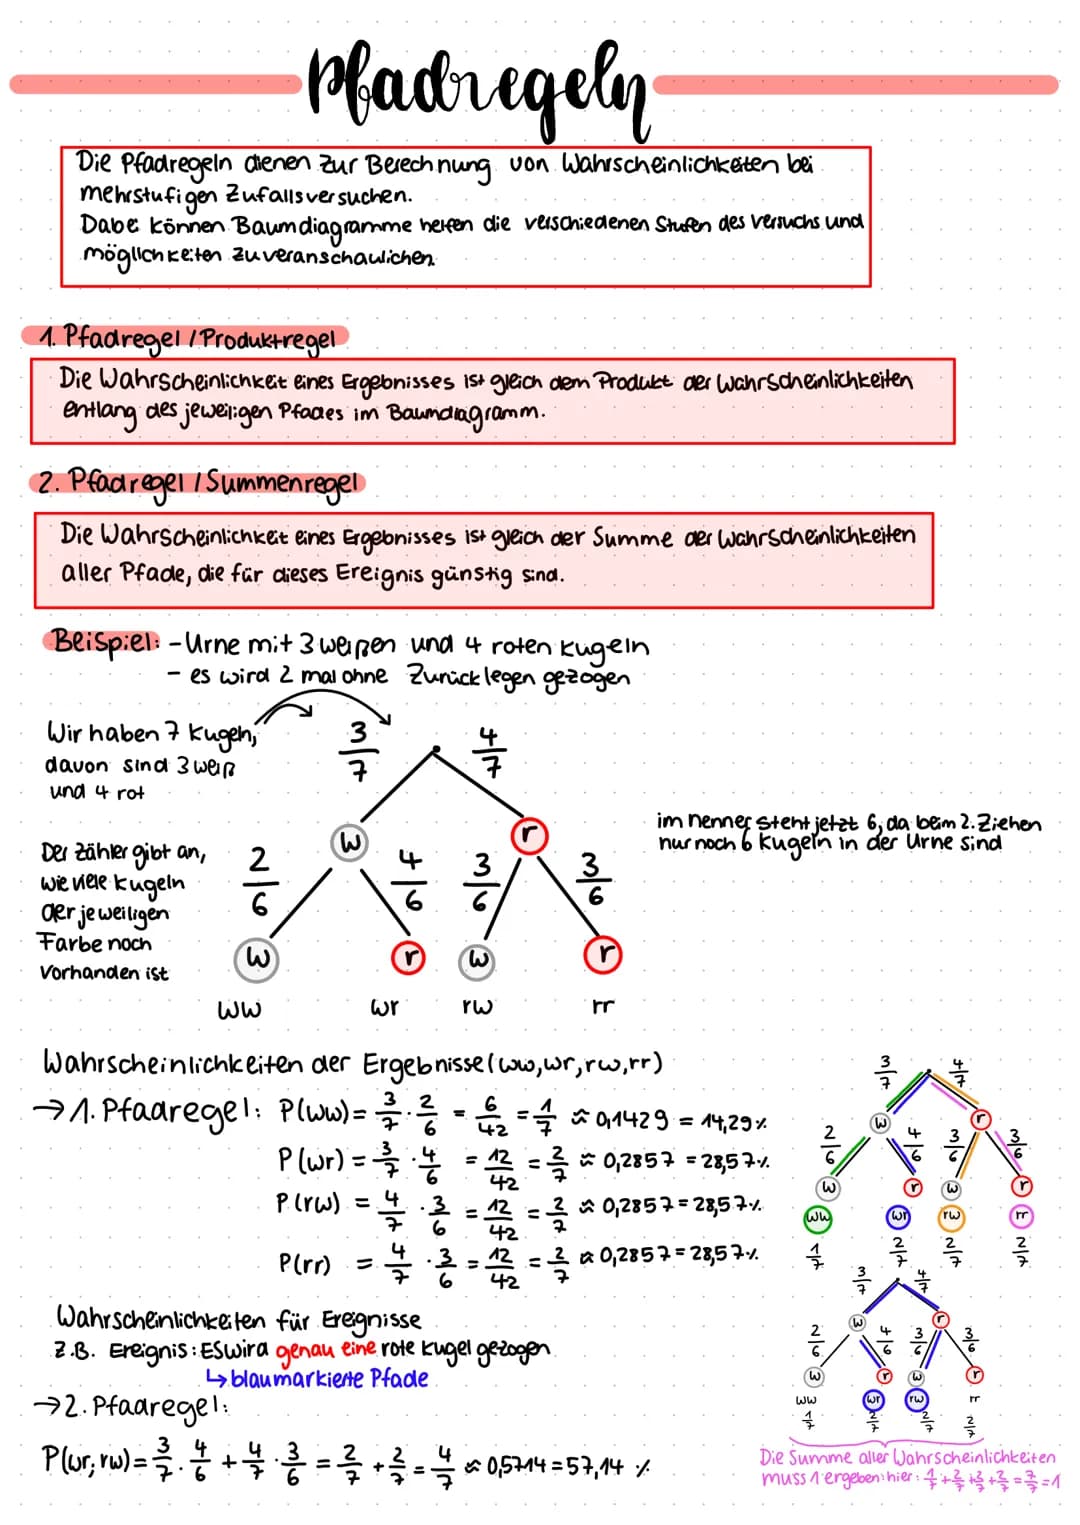 Pfadregeln
Die Pfadregeln dienen zur Berechnung von Wahrscheinlichkeiten bei
mehrstufigen Zufallsversuchen.
Dabei können Baumdiagramme helfen die verschiedenen Stufen des Versuchs und
möglichkeiten zuveranschaulichen
1. Pfadregel / Produktregel
Die Wahrscheinlichkeit eines Ergebnisses ist gleich dem Produkt der Wahrscheinlichkeiten
entlang des jeweiligen Pfades im Baumdiagramm.
2. Pfadregel / Summenregel
Die Wahrscheinlichkeit eines Ergebnisses ist gleich der Summe der Wahrscheinlichkeiten
aller Pfade, die für dieses Ereignis günstig sind.
Beispiel: - Urne mit 3 weißen und 4 roten Kugeln
- es wird 2 mal ohne Zurücklegen gezogen
Wir haben 7 Kugeln,
davon sind 3 weiß
und 4 rot
3/7 4/7
w r
im nenner steht jetzt 6, da beim 2. Ziehen
nur noch 6 Kugeln in der Urne sind
Der Zähler gibt an,
wie viele Kugeln
der jeweiligen
Farbe noch
vorhanden ist
2/6 4/6 3/6 3/6
w r w r
ww wr rw rr
Wahrscheinlichkeiten der Ergebnisse (ww, wr, rw, rr)
→ 1. Pfadregel: P(ww) = 3/7 · 2/6 = 6/42 = 1/7 ≈ 0,1429 = 14,29%
P(wr) = 3/7 · 4/6 = 12/42 = 2/7 ≈ 0,2857 = 28,57%
P(rw) = 4/7 · 3/6 = 12/42 = 2/7 ≈ 0,2857 = 28,57%
P(rr) = 4/7 · 3/6 = 12/42 = 2/7 ≈ 0,2857 = 28,57%
3/7 4/7
w r
2/6 4/6 3/6 3/6
w r w r
ww wr rw rr
1/7 2/7 2/7 2/7
Wahrscheinlichkeiten für Ereignisse
z.B. Ereignis: Es wird genau eine rote Kugel gezogen
↳ blau markierte Pfade
→ 2. Pfadregel:
P(wr; rw) = 3/7 · 4/6 + 4/7 · 3/6 = 2/7 + 2/7 = 4/7 ≈ 0,5714 = 57,14 %
3/7 4/7
w r
2/6 4/6 3/6 3/6
w r w r
ww wr rw rr
1/7 2/7 2/7 2/7
Die Summe aller Wahrscheinlichkeiten
muss 1 ergeben: hier: 1/7 + 2/7 + 2/7 + 2/7 = 7/7 = 1